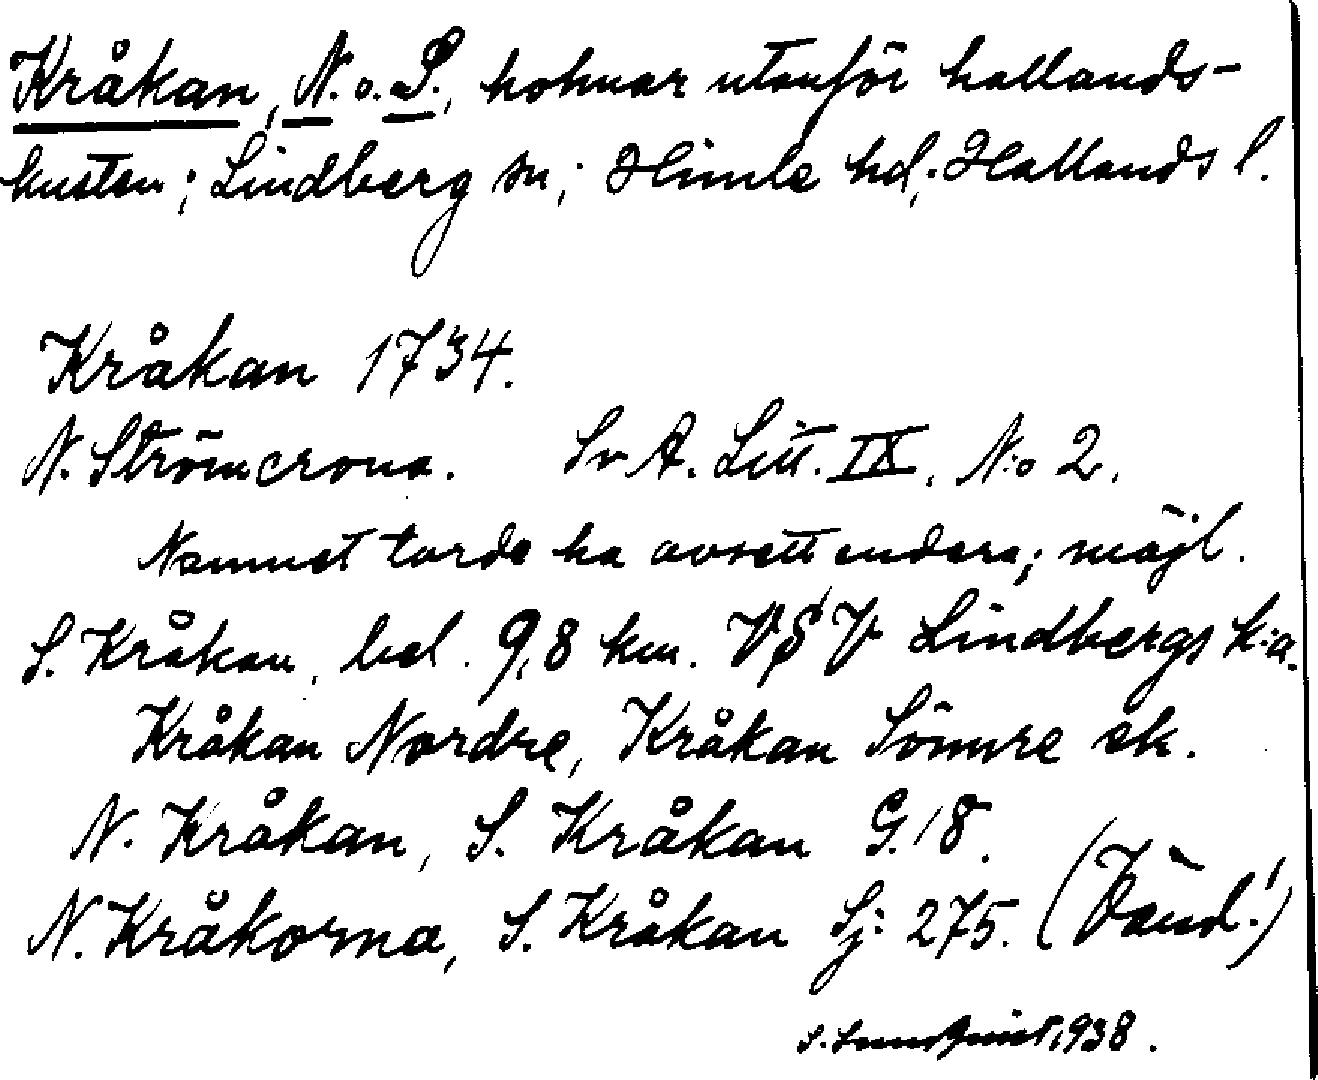 Kråkan, N. o. S., holmar utanför hallands-
kusten; Lindberg sn; Himle hd; Hallands l.
Kråkan 1734.
N. Strömcrona. Sv A. Litt. IX. N:o 2.
Namnet torde ha avsett endera; möjl.
S. Kråkan, bel. 9,8 km. VSV Lindbergs k:a.
Kråkan Nordre, Kråkan Sönnre ek.
N. Kråkan, S. Kråkan G. 18.
N. Kråkorna, S. Kråkan Sj: 275. (Vänd!)
S. 1938.